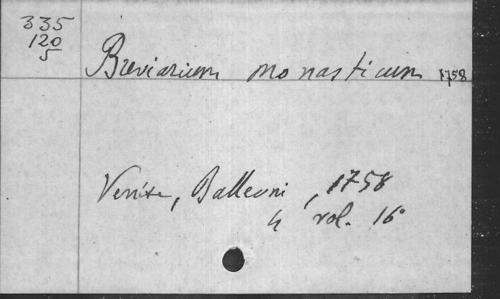 335
120
5
Breviarium monasticum 1758
Venise, Balleoni, 1758
4 vol. 16°